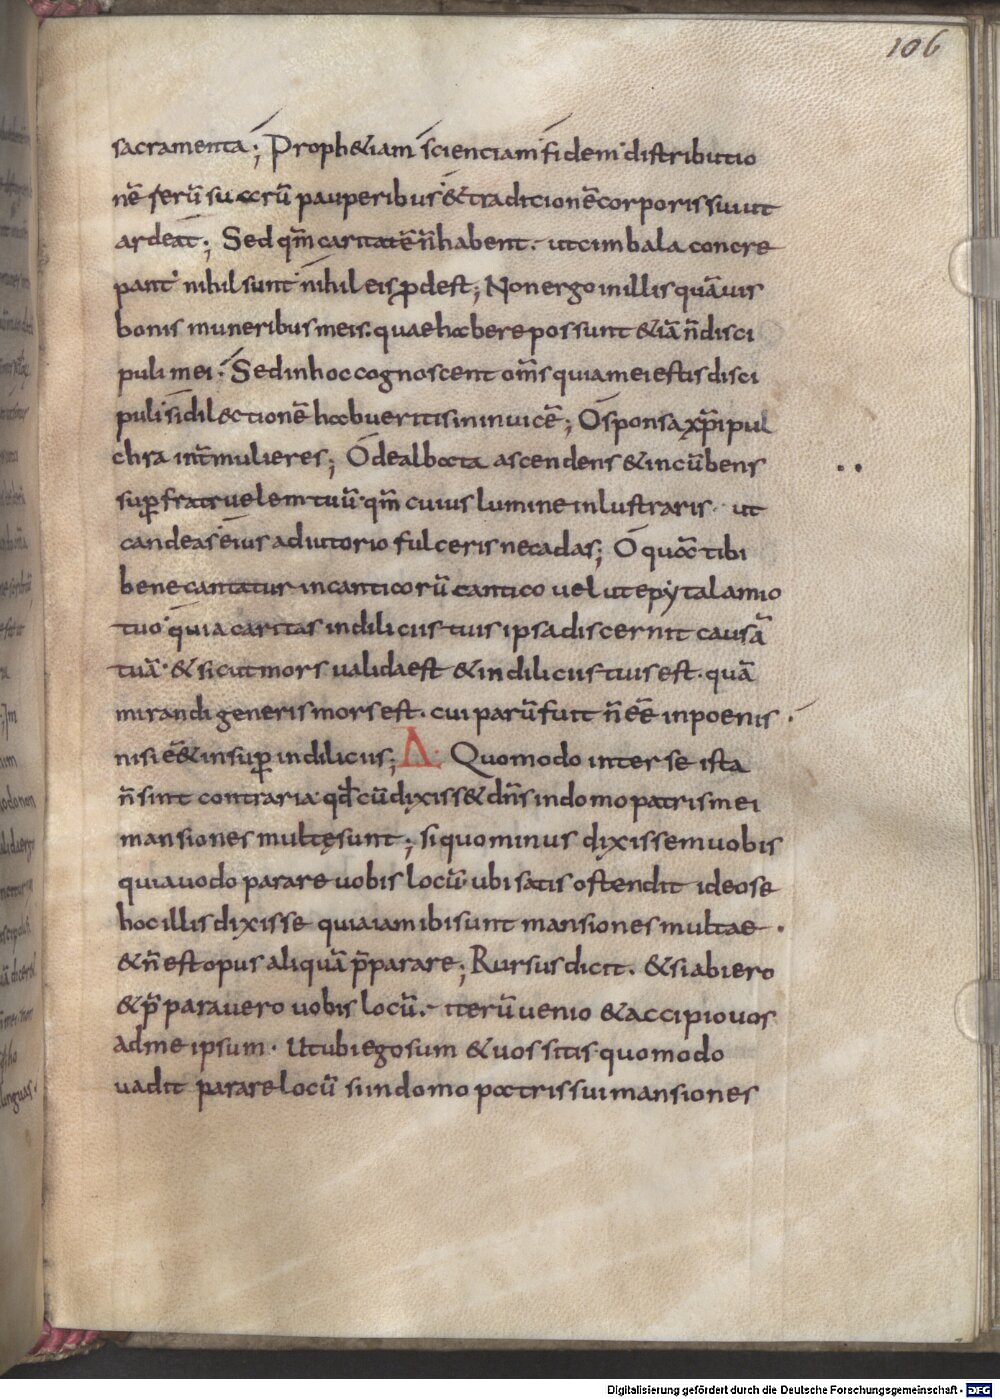 106
sacramenta; Proph&iam scienciam fidem distributio
nē rerū suarū pauperibus & tradicionē corporis sui ut
ardeat; Sed qm̄ caritatē n̄ habent. ut cimbala concre
pant nihil sunt nihil eis ꝓdest; Non ergo in illis quāuis
bonis muneribus meis. quae habere possunt &iā n̄ disci
puli mei. Sed in hoc cognoscent om̄s quia mei estis disci
puli si dilectionē habueritis in inuicē; O sponsa xp̄i pul
chra int̄ mulieres; O dealbata ascendens & incūbens
suꝑ fratruelem tuū qm̄ cuius lumine inlustraris ut
candeas eius adiutorio fulceris ne cadas; O quā tibi
bene cantatur in canticorū cantico uelut epytalamio
tuo quia caritas in diliciis tuis ipsa discernit causā
tuā & sicut mors ualida est & in diliciis tuis est. quā
mirandi generis mors est. cui parū fuit n̄ eē in poenis.
nisi eē& insuꝑ in diliciis; Δ Quomodo inter se ista
n̄ sint contraria qd̄ cū dixiss& dn̄s in domo patris mei
mansiones multę sunt; si quo minus dixissem uobis
quia uodo parare uobis locū ubi satis ostendit ideo se
hoc illis dixisse quia iam ibi sunt mansiones multae.
& n̄ est opus aliquā p̄parare; Rursus dicit. & si abiero
& p̄parauero uobis locū. iterū uenio & accipio uos
ad me ipsum. Ut ubi ego sum & uos sitis quomodo
uadit parare locū si in domo patris sui mansiones
Digitalisierung gefördert durch die Deutsche Forschungsgemeinschaft - DFG